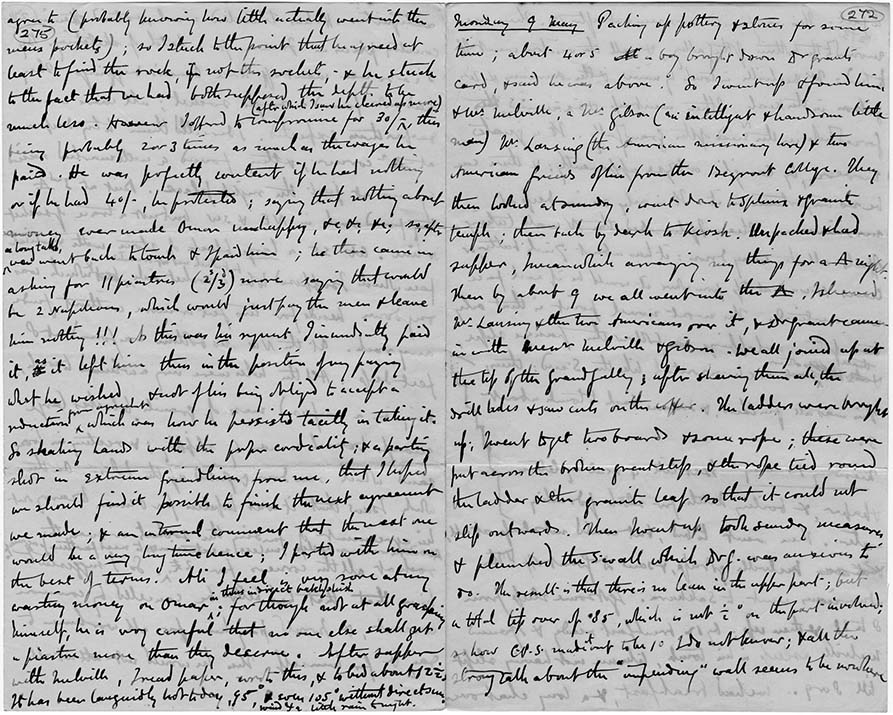 275
agreed (probably knowing how little actually went into the
mens pockets); so I stuck to the point that he agreed at
least to find the rock, if not the sockets, & he stuck
to the fact that we had both supposed the depth to be
(after which I saw he cleared up more)
much less. However I offered to compromise for 30/-, this
being probably 2 or 3 times as much as the wages he
paid. He was perfectly content if he had nothing
or if he had 40/-, he protested; saying that nothing about
money ever made Omar unhappy, &c &c &c. so after
a long talk,
we went back to tomb & I paid him; he then came in
asking for 11 piastres (2/3) more saying that would
be 2 Napoleons, which would just pay the men & leave
him nothing!!! As this was his request I immediately paid
it, as it left him thus in the position of my paying
what he wished & not of his being obliged to accept a
reduction from agreement, which was how he persisted tacitly in taking it.
So shaking hands with the proper cordiality; & a parting
shot in extreme friendliness from me, that I hoped
we should find it possible to finish the next agreement
we made; & an internal comment that the next one
would be a very long time hence; I parted with him on
the best of terms. Ali I feel is very sore at my
wasting money on Omar, in this indirect bakhshish; for though not at all grasping
himself, he is very careful that no one else shall get
a piastre more than they deserve. After supper
with Melville, I read paper, wrote this, & to bed about 12½.
It has been languidly hot today, 95°, & even 105°, without direct sun,
wind & a little rain tonight.
272
Monday 9 May Packing up pottery & stones for some
time; about 4 or 5 a boy brought down Dr Grants
card, & said he was above. So I went up & found him
& Mr Melville, a Mr Gibson (an intelligent & handsome little
man) Mr Lansing (the American missionary here) & two
American friends of his from the Beyrout College. They
then looked at sundry, went down to Sphinx & granite
temple; then back by dark to kiosk. Unpacked & had
supper, I meanwhile arranging my things for a night.
Then by about 9 we all went into the , I showed
Mr Lansing & the two Americans over it, & Dr Grant came
in with Melville & Gibson. We all joined up at
the top of the grand gallery; after showing them all, the
drill holes & saw cuts on the coffer. The ladders were brought
up; I went to get two boards & some rope; these were
put across the broken great step, & the rope tied round
the ladder & the granite leaf so that it could not
slip outwards. Then I went up took sundry measures
& plumbed the S wall which Dr G. was anxious to
do. The result is that there is no lean in the upper part; but
a total tip over of .85, which is not ½° on the part involved;
so how C.P.S. made it to be 1° I do not know; & all the
strong talk about the "impending" wall seems to be moonshine